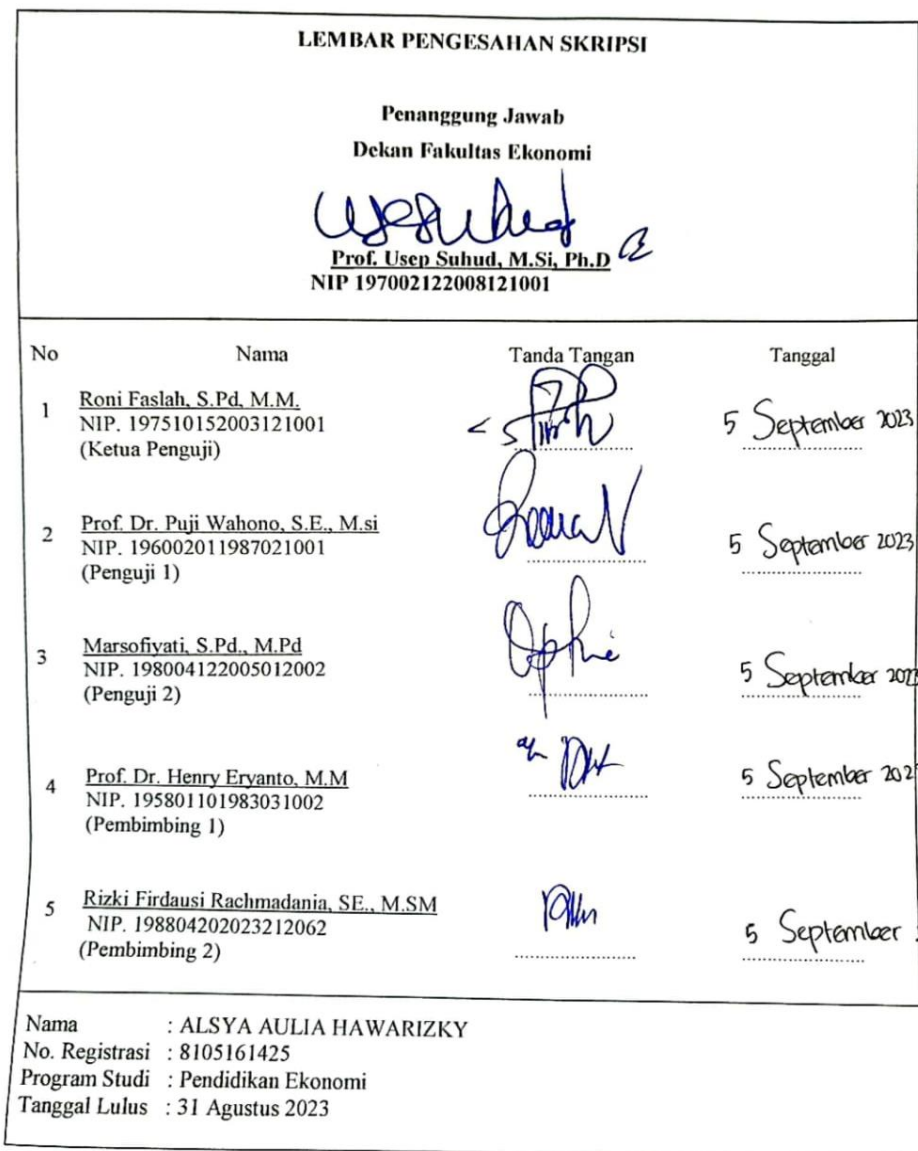 LEMBAR PENGESAHAN SKRIPSI
Penanggung Jawab
Dekan Fakultas Ekonomi
Prof. Usep Suhud, M.Si, Ph.D
NIP 197002122008121001
No Nama Tanda Tangan Tanggal
1 Roni Faslah, S.Pd, M.M.
NIP. 197510152003121001
(Ketua Penguji)
5 September 2023
2 Prof. Dr. Puji Wahono, S.E., M.si
NIP. 196002011987021001
(Penguji 1)
5 September 2023
3 Marsofiyati, S.Pd., M.Pd
NIP. 198004122005012002
(Penguji 2)
5 September 2023
4 Prof. Dr. Henry Eryanto, M.M
NIP. 195801101983031002
(Pembimbing 1)
a/n
5 September 202
5 Rizki Firdausi Rachmadania, SE., M.SM
NIP. 198804202023212062
(Pembimbing 2)
5 September
Nama : ALSYA AULIA HAWARIZKY
No. Registrasi : 8105161425
Program Studi : Pendidikan Ekonomi
Tanggal Lulus : 31 Agustus 2023